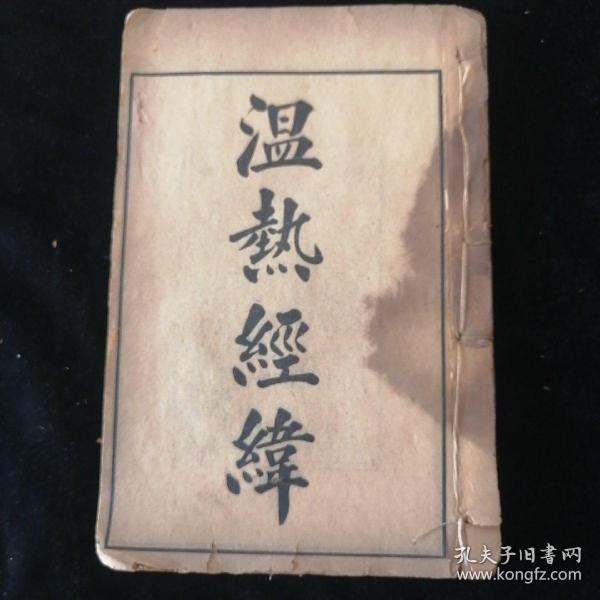 温熱經緯
孔夫子旧书网
www.kongfz.com